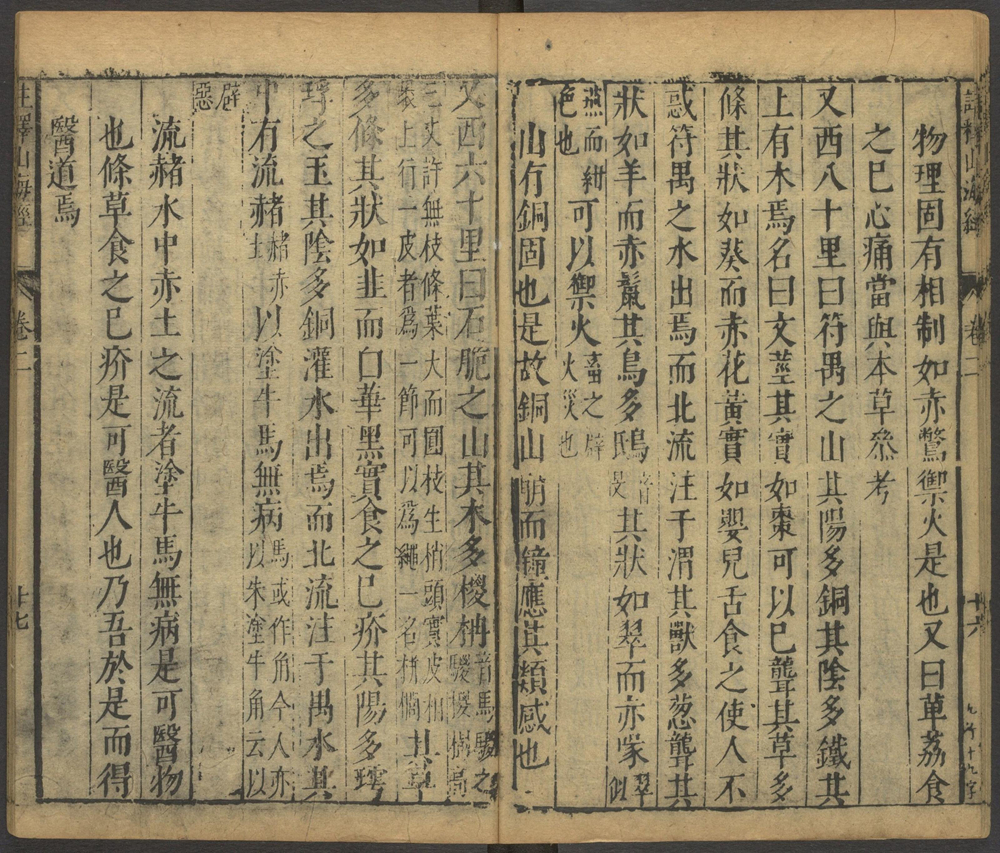 物理固有相制如赤鷩禦火是也又曰萆荔食
之已心痛當與本草叅考
又西八十里曰符禺之山其陽多銅其陰多鐵其
上有木焉名曰文莖其實如棗可以已聾其草多
條其狀如葵而赤花黃實如嬰兒舌食之使人不
惑符禺之水出焉而北流注于渭其獸多葱聾其
狀如羊而赤鬣其鳥多鴖音旻其狀如翠而赤喙翠似
燕而紺色也可以禦火畜之辟火災也
山有銅固也是故銅山崩而鐘應其類感也
註釋山海經
卷二
十六
又西六十里曰石脆之山其木多椶枏音馬騣之騣椶樹高
三丈許無枝條葉大而圓枝生梢頭實皮相
裹上行一皮者爲一節可以爲繩一名栟櫚其草
多條其狀如韭而白華黑實食之已疥其陽多㻬
琈之玉其陰多銅灌水出焉而北流注于禺水其
中有流赭赭赤土以塗牛馬無病馬或作角今人亦以朱塗牛角云以
辟惡
流赭水中赤土之流者塗牛馬無病是可醫物
也條草食之已疥是可醫人也乃吾於是而得
醫道焉
註釋山海經
卷二
十七